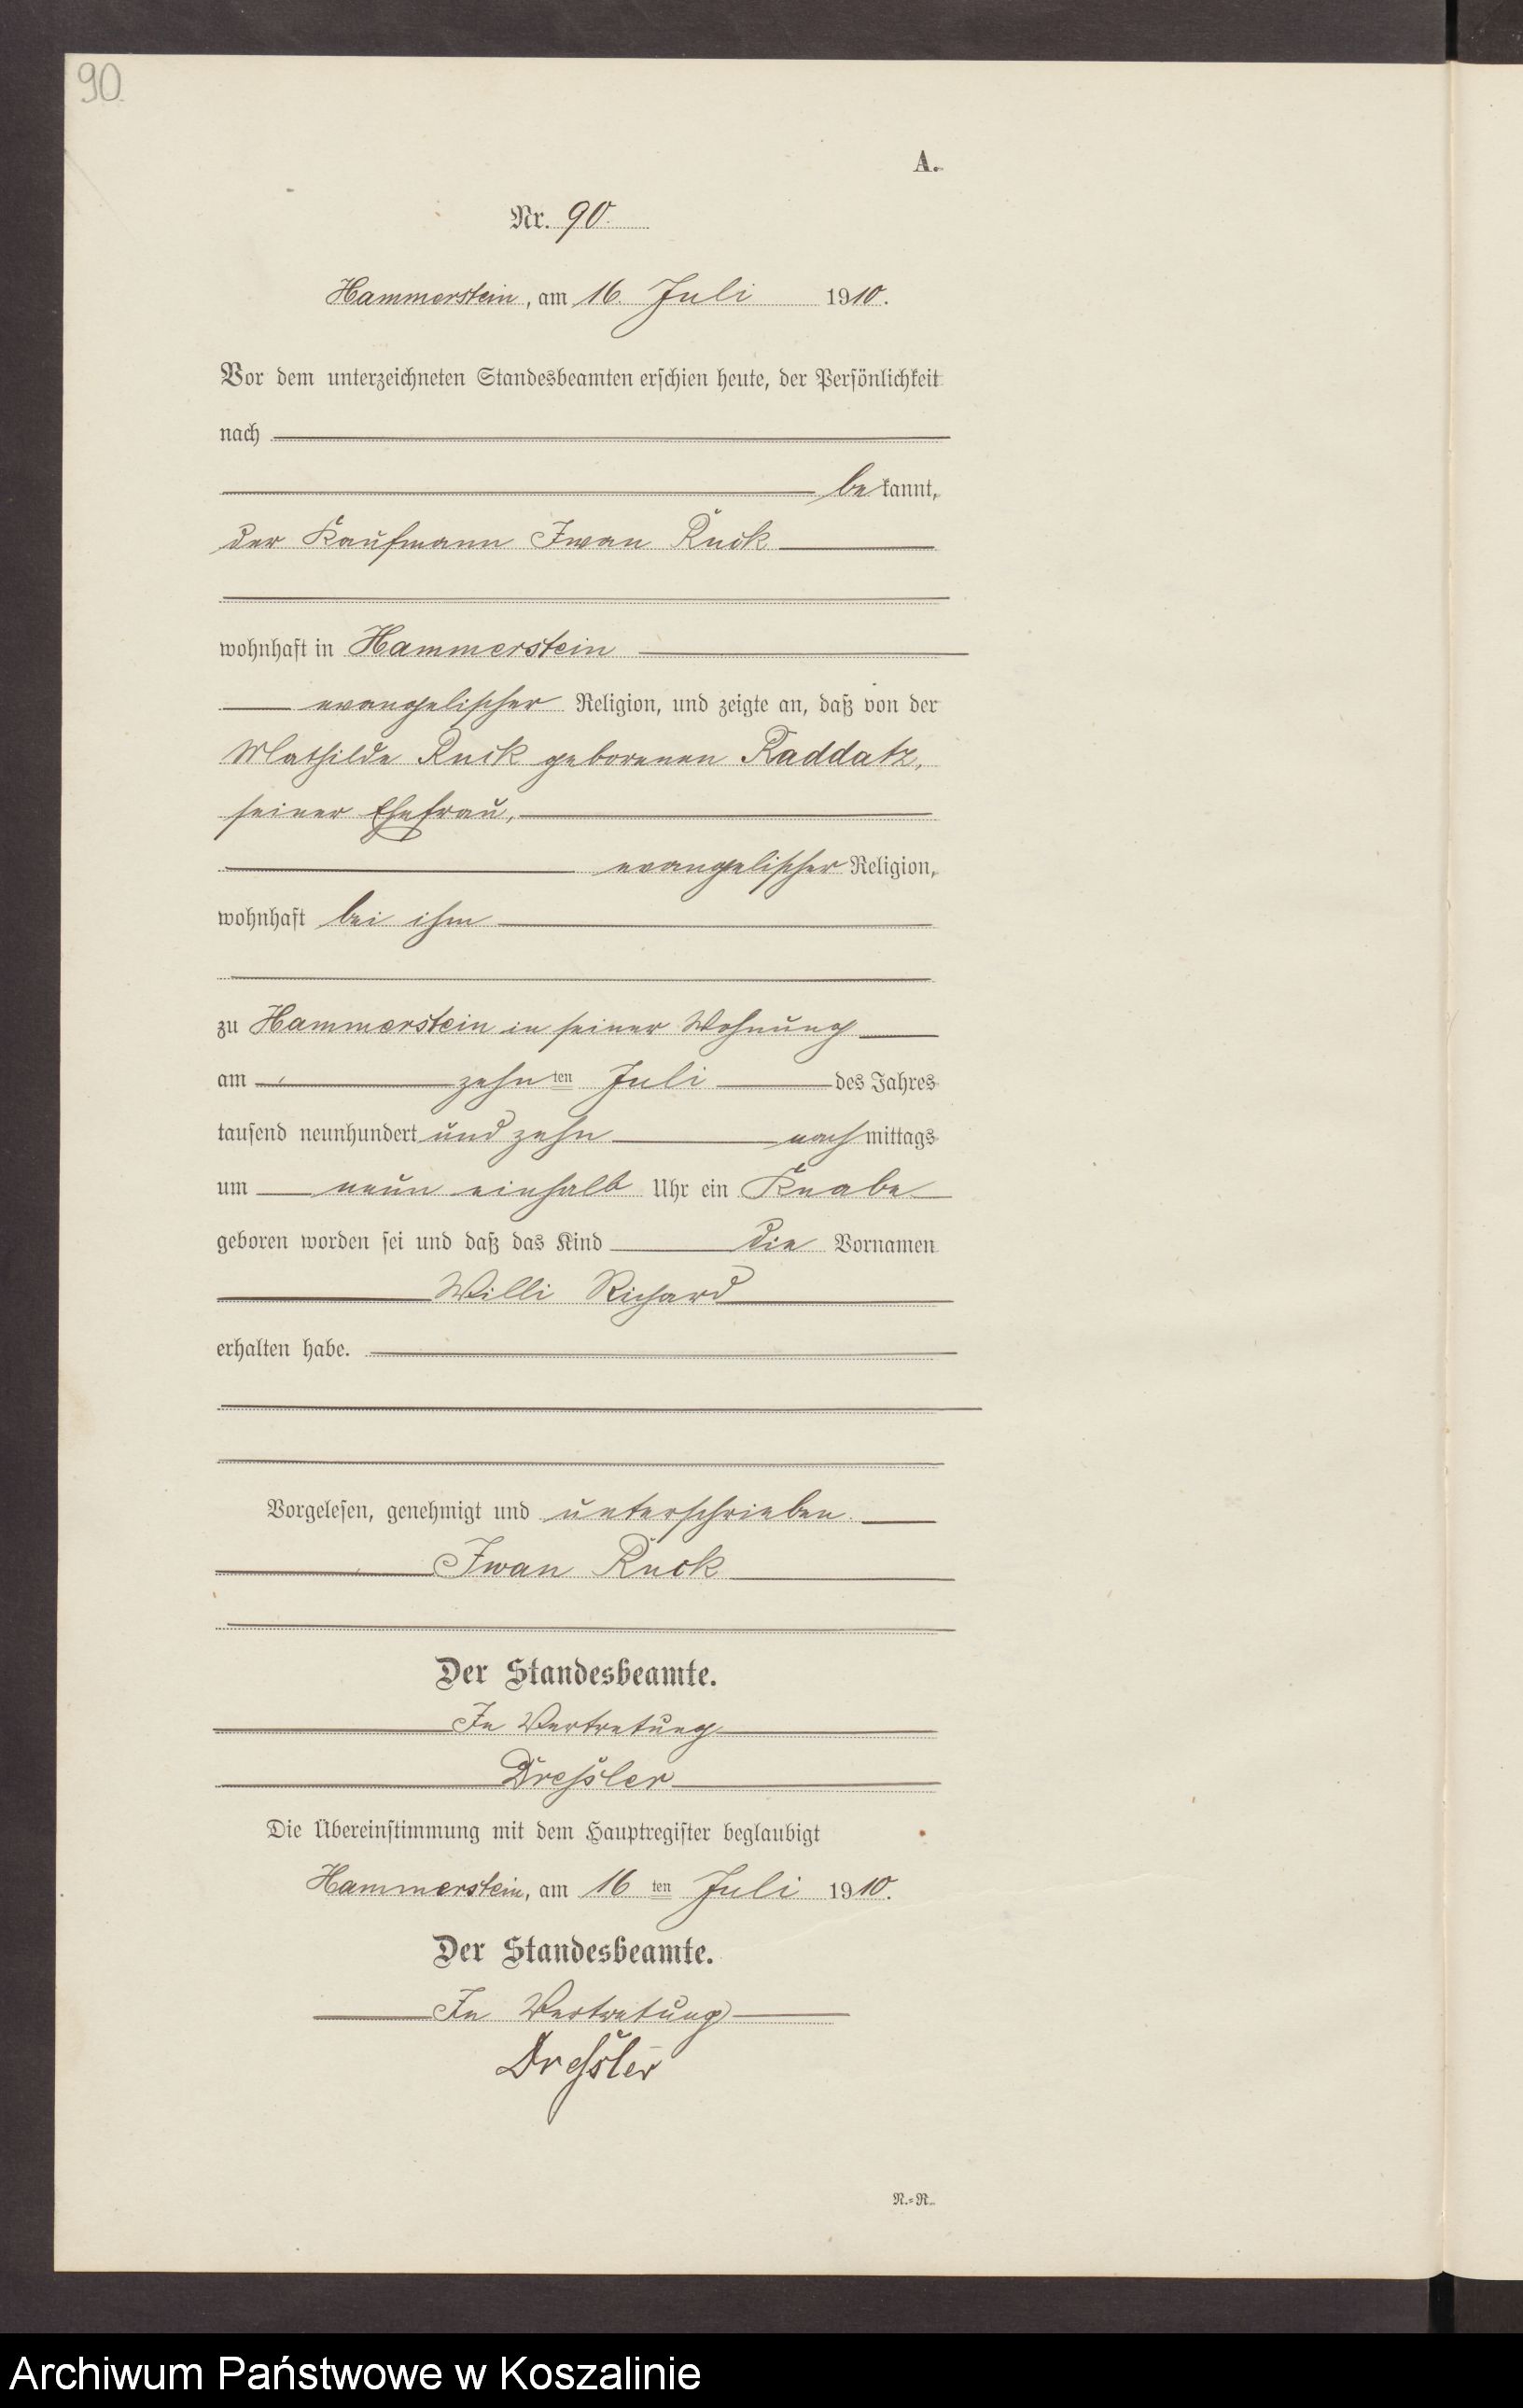 90
A.
Nr. 90
Hammerstein, am 16. Juli 1910.
Vor dem unterzeichneten Standesbeamten erschien heute, der Persönlichkeit
nach
bekannt,
der Kaufmann Iwan Ruck
wohnhaft in Hammerstein
evangelischer Religion, und zeigte an, daß von der
Mathilde Ruck geborenen Raddatz,
seiner Ehefrau,
evangelischer Religion,
wohnhaft bei ihm
zu Hammerstein in seiner Wohnung
am zehnten Juli des Jahres
tausend neunhundert und zehn nachmittags
um neun einhalb Uhr ein Knabe
geboren worden sei und daß das Kind die Vornamen
Willi Richard
erhalten habe.
Vorgelesen, genehmigt und unterschrieben.
Iwan Ruck
Der Standesbeamte.
In Vertretung
Dreßler
Die Übereinstimmung mit dem Hauptregister beglaubigt
Hammerstein, am 16ten Juli 1910.
Der Standesbeamte.
In Vertretung
Dreßler
N.=R.
Archiwum Państwowe w Koszalinie